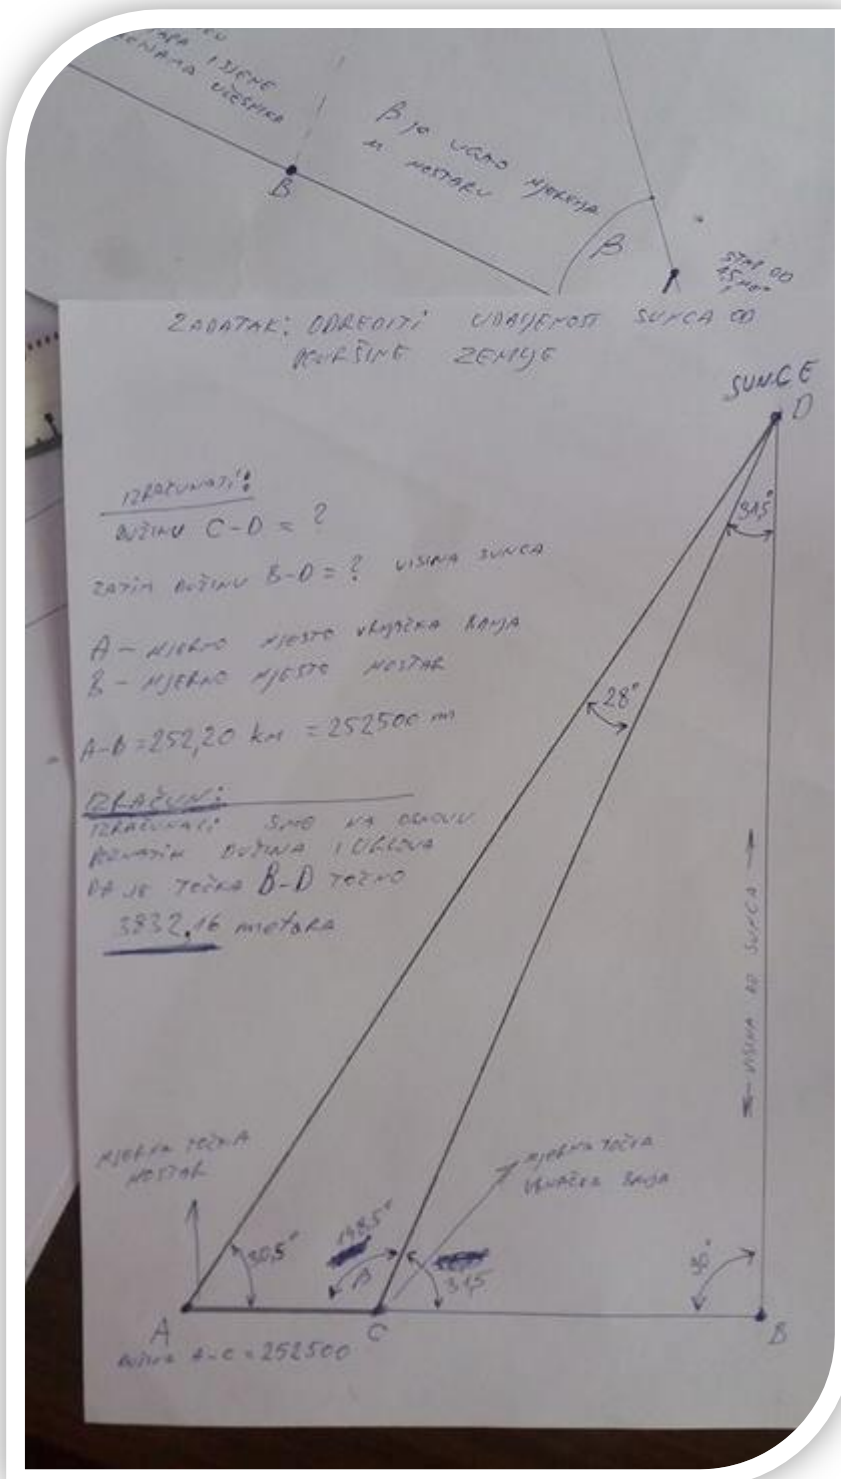 I SJENE
UČESNIKA
B
β JE UGAO MJERENJA
U MOSTARU
β
ŠTAP OD
ZADATAK: ODREDITI UDALJENOST SUNCA OD
POVRŠINE ZEMLJE
SUNCE
D
IZRAČUNATI:
DUŽINU C-D = ?
ZATIM DUŽINU B-D = ? VISINA SUNCA
A - MJERNO MJESTO VRNJAČKA BANJA
B - MJERNO MJESTO MOSTAR
A-B = 252,20 km = 252500 m
IZRAČUN:
IZRAČUNALI SMO NA OSNOVU
POZNATIH DUŽINA I UGLOVA
DA JE TOČKA B-D TOČNO
3832,16 metara
31,5°
28°
VISINA DO SUNCA
MJERNA TOČKA
MOSTAR
MJERNA TOČKA
VRNJAČKA BANJA
30,5°
148,5°
β
31,5
90°
A
C
B
DUŽINA A-C = 252500